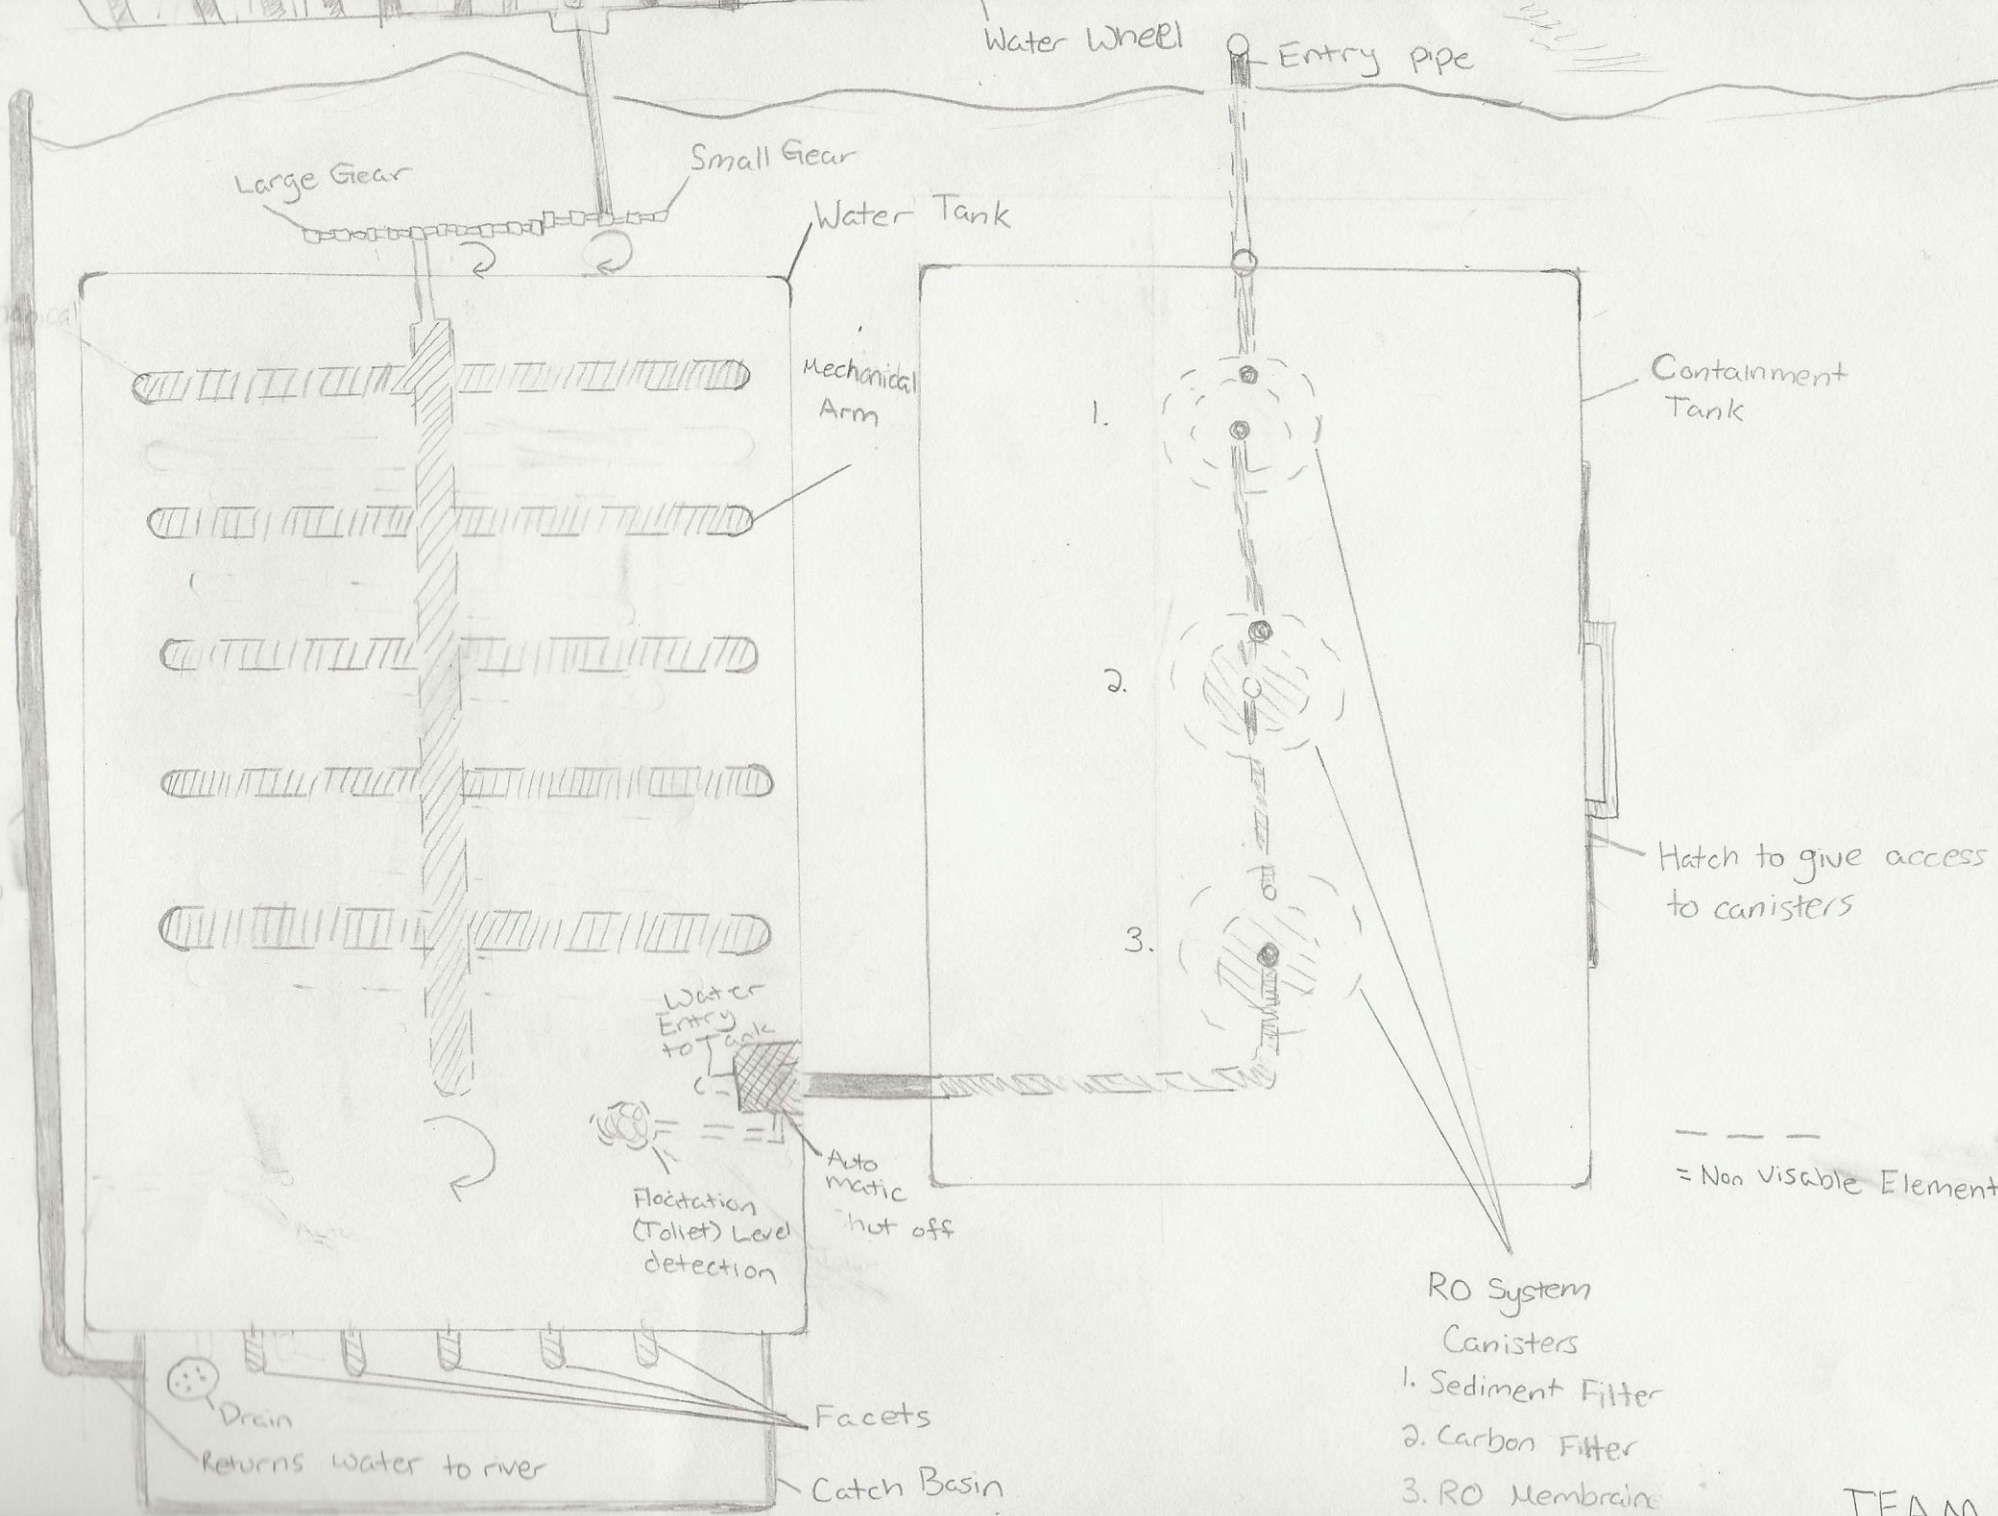 Water Wheel
Entry pipe
Large Gear
Small Gear
Water Tank
Mechanical
Arm
1.
Containment
Tank
2.
Hatch to give access
to canisters
3.
Water
Entry
to Tank
Auto
matic
Shut off
Floatation
(Toliet) Level
detection
= Non Visable Element
RO System
Canisters
1. Sediment Filter
2. Carbon Filter
3. RO Membrain
Drain
Facets
Returns water to river
Catch Basin
TEAM